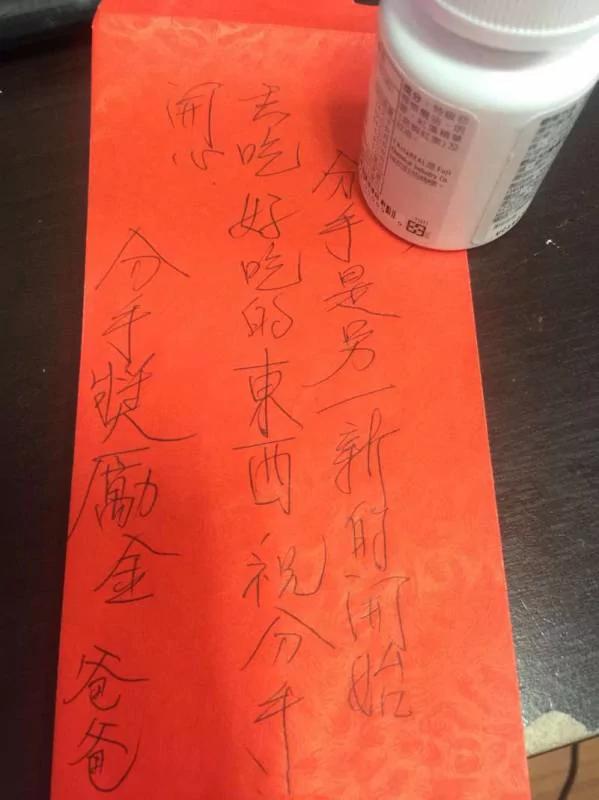 分手是另一新的開始
去吃好吃的東西祝分手
開心
分手獎勵金 爸爸
Fuji
Chemical Industry Co.